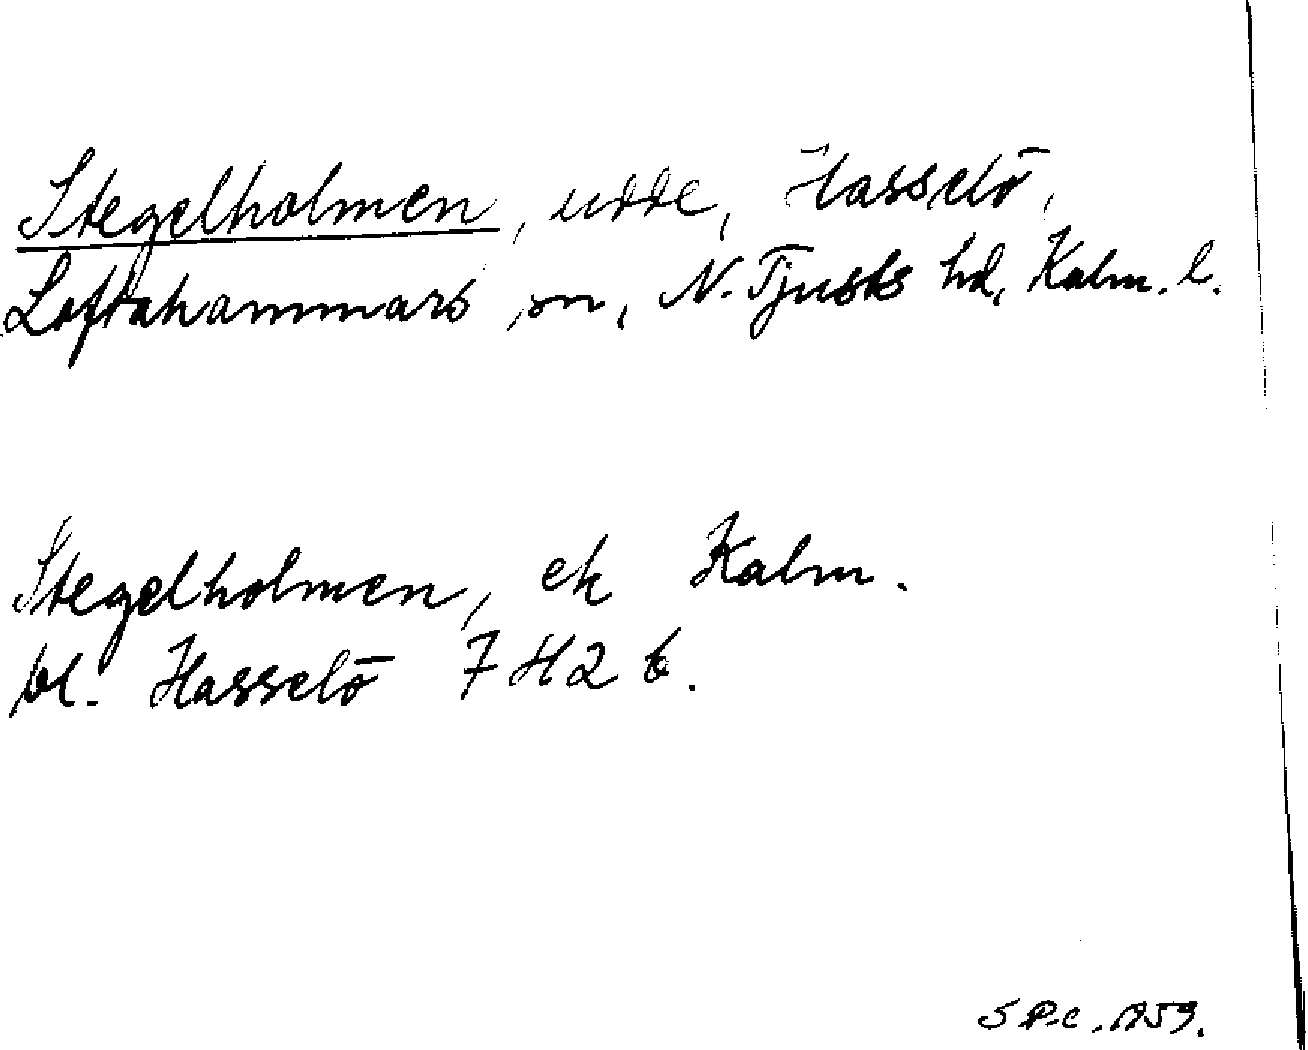 Stegelholmen, udde, Hasselö,
Loftahammars sn, N. Tjusts hd, Kalm. l.
Stegelholmen, ek Kalm.
bl. Hasselö 7 H 2 b.
S P.C. 1959.